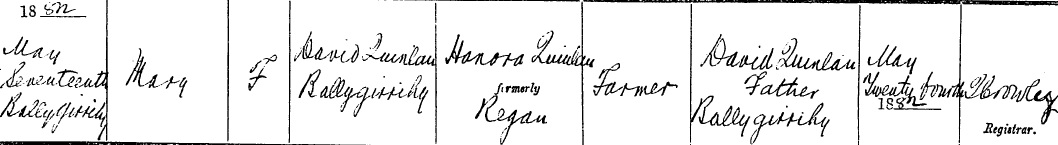 1882
May
Seventeenth
Ballygirrihy
Mary
F
David Quinlan
Ballygirrihy
Honora Quinlan
formerly
Regan
Farmer
David Quinlan
Father
Ballygirrihy
May
Twenty fourth
1882
Crowley
Registrar.